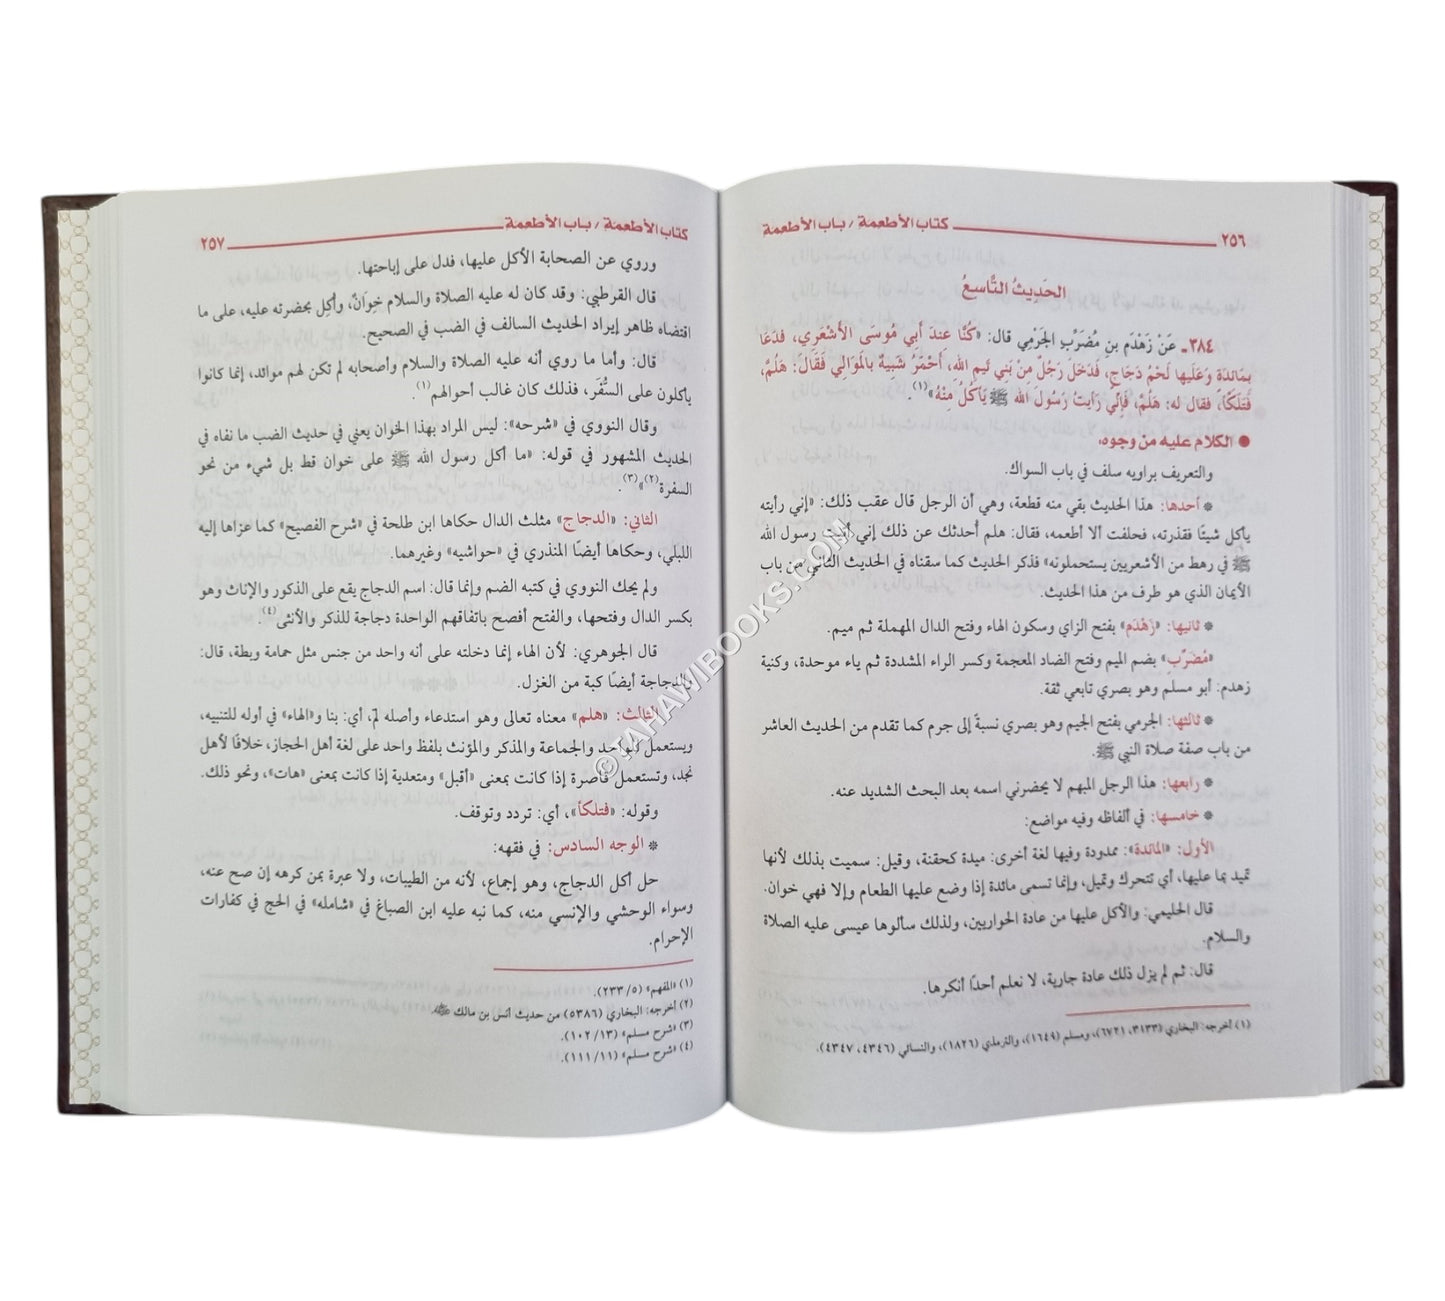 كتاب الأطعمة / باب الأطعمة ٢٥٦
الحَدِيثُ التَّاسِعُ
٣٨٤ـ عَنْ زَهْدَم بنِ مُضَرِّبِ الجَرْمِي قال: «كُنَّا عندَ أبي مُوسَى الأشْعَرِي، فدَعَا
بِمَائدَة وَعَلَيها لَحْمُ دَجَاجٍ، فَدَخَلَ رَجُلٌ مِنْ بَنِي تَيمِ الله، أَحْمَرُ شَبِيهٌ بِالمَوالي فَقَالَ: هَلُمَّ،
فَتَلَكَّأَ، فقال له: هَلُمَّ، فَإِنِّي رَأيتُ رَسُولَ الله ﷺ يَأكُلُ مِنْهُ»(١).
● الكلام عليه من وجوه،
والتعريف براويه سلف في باب السواك.
* أحدها: هذا الحديث بقي منه قطعة، وهي أن الرجل قال عقب ذلك: «إني رأيته
يأكل شيئًا فقذرته، فحلفت ألا أطعمه، فقال: هلم أحدثك عن ذلك إني أتيت رسول الله
ﷺ في رهط من الأشعريين يستحملونه» فذكر الحديث كما سقناه في الحديث الثاني من باب
الأيمان الذي هو طرف من هذا الحديث.
* ثانيها: «زَهْدَم» بفتح الزاي وسكون الهاء وفتح الدال المهملة ثم ميم.
«مُضَرِّب» بضم الميم وفتح الضاد المعجمة وكسر الراء المشددة ثم باء موحدة، وكنية
زهدم: أبو مسلم وهو بصري تابعي ثقة.
* ثالثها: الجرمي بفتح الجيم وهو بصري نسبةً إلى جرم كما تقدم من الحديث العاشر
من باب صفة صلاة النبي ﷺ.
* رابعها: هذا الرجل المبهم لا يحضرني اسمه بعد البحث الشديد عنه.
* خامسها: في ألفاظه وفيه مواضع:
الأول: «المائدة»: ممدودة وفيها لغة أخرى: ميدة كحقنة، وقيل: سميت بذلك لأنها
تميد بما عليها، أي تتحرك وتميل، وإنما تسمى مائدة إذا وضع عليها الطعام وإلا فهي خوان.
قال الحليمي: والأكل عليها من عادة الحواريين، ولذلك سألوها عيسى عليه الصلاة
والسلام.
قال: ثم لم يزل ذلك عادة جارية، لا نعلم أحدًا أنكرها.
(١) أخرجه: البخاري (٣١٣٣، ٦٧٢١)، ومسلم (١٦٤٩)، والترمذي (١٨٢٦)، والنسائي (٤٣٤٦، ٤٣٤٧).
كتاب الأطعمة / باب الأطعمة ٢٥٧
وروي عن الصحابة الأكل عليها، فدل على إباحتها.
قال القرطبي: وقد كان له عليه الصلاة والسلام خِوَانٌ، وأُكِل بحضرته عليه، على ما
اقتضاه ظاهر إيراد الحديث السالف في الضب في الصحيح.
قال: وأما ما روي أنه عليه الصلاة والسلام وأصحابه لم تكن لهم موائد، إنما كانوا
يأكلون على السُّفَر، فذلك كان غالب أحوالهم(١).
وقال النووي في «شرحه»: ليس المراد بهذا الخوان يعني في حديث الضب ما نفاه في
الحديث المشهور في قوله: «ما أكل رسول الله ﷺ على خوان قط بل شيء من نحو
السفرة(٢)»(٣).
الثاني: «الدجاج» مثلث الدال حكاها ابن طلحة في «شرح الفصيح» كما عزاها إليه
اللبلي، وحكاها أيضًا المنذري في «حواشيه» وغيرهما.
ولم يحك النووي في كتبه الضم وإنما قال: اسم الدجاج يقع على الذكور والإناث وهو
بكسر الدال وفتحها، والفتح أفصح باتفاقهم الواحدة دجاجة للذكر والأنثى(٤).
قال الجوهري: لأن الهاء إنما دخلته على أنه واحد من جنس مثل حمامة وبطة، قال:
والدجاجة أيضًا كبة من الغزل.
الثالث: «هلم» معناه تعالى وهو استدعاء وأصله لم، أي: بنا و«الهاء» في أوله للتنبيه،
ويستعمل للواحد والجماعة والمذكر والمؤنث بلفظ واحد على لغة أهل الحجاز، خلافًا لأهل
نجد، وتستعمل قاصرة إذا كانت بمعنى «أقبل» ومتعدية إذا كانت بمعنى «هات»، ونحو ذلك.
وقوله: «فتلكأ»، أي: تردد وتوقف.
* الوجه السادس: في فقهه:
حل أكل الدجاج، وهو إجماع، لأنه من الطيبات، ولا عبرة بمن كرهه إن صح عنه،
وسواء الوحشي والإنسي منه، كما نبه عليه ابن الصباغ في «شامله» في الحج في كفارات
الإحرام.
(١) «المفهم» (٥/ ٢٣٣).
(٢) أخرجه: البخاري (٥٣٨٦) من حديث أنس بن مالك ﷺ.
(٣) «شرح مسلم» (١٣/ ١٠٢).
(٤) «شرح مسلم» (١١/ ١١١).
© TAHAWIBOOKS.COM